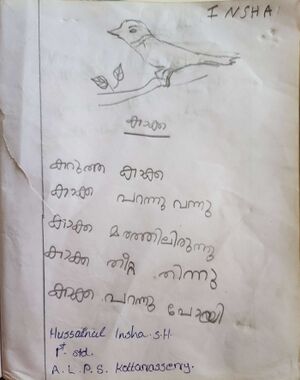 INSHA
കാക്ക
കറുത്ത കാക്ക
കാക്ക പറന്നു വന്നു
കാക്ക മരത്തിലിരുന്നു
കാക്ക തീറ്റ തിന്നു
കാക്ക പറന്നു പോയി
Hussainul Insha.S.H.
1st std.
A.L.P.S. Kottanassery.